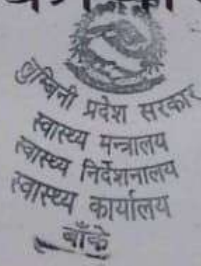 लुम्बिनी प्रदेश सरकार
स्वास्थ्य मन्त्रालय
स्वास्थ्य निर्देशनालय
स्वास्थ्य कार्यालय
बाँके